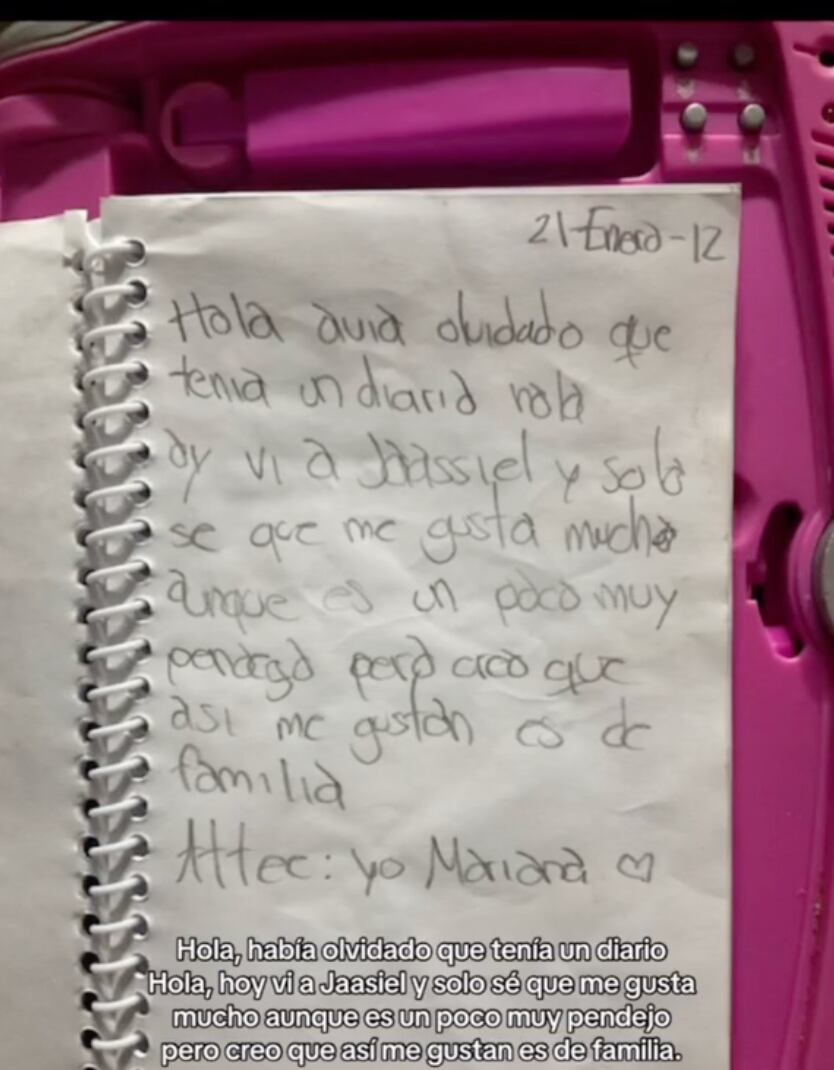 21-Enero-12
Hola avia olvidado que
tenia un diario hola
oy vi a Jaassiel y solo
se que me gusta mucho
aunque es un poco muy
pendego pero creo que
asi me gustan es de
familia
Attec: yo Mariana ♡
Hola, había olvidado que tenía un diario
Hola, hoy vi a Jaasiel y solo sé que me gusta
mucho aunque es un poco muy pendejo
pero creo que así me gustan es de familia.